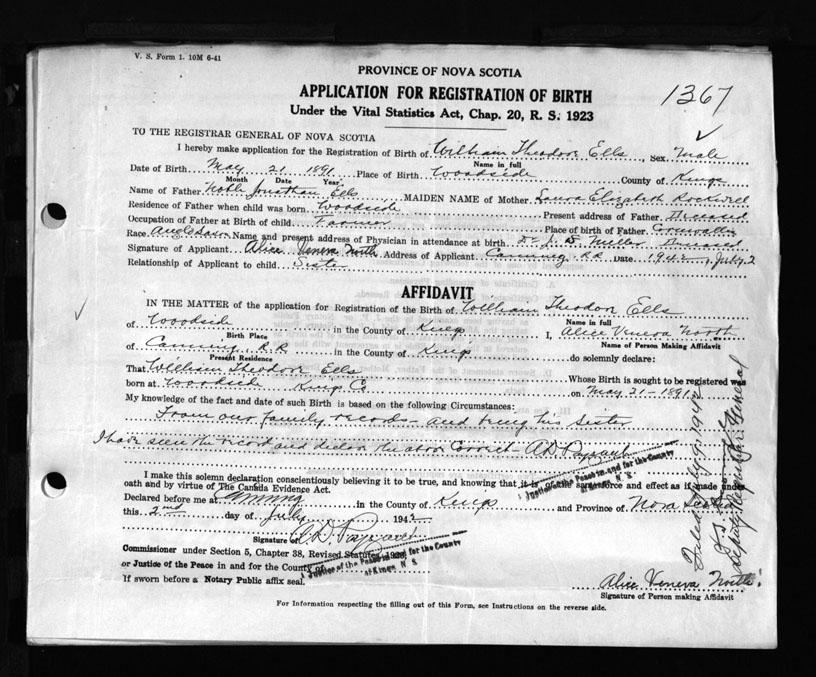 V. S. Form 1. 10M 6-41
PROVINCE OF NOVA SCOTIA
APPLICATION FOR REGISTRATION OF BIRTH
1367
Under the Vital Statistics Act, Chap. 20, R. S. 1923
TO THE REGISTRAR GENERAL OF NOVA SCOTIA
I hereby make application for the Registration of Birth of William Theodore Ells, Sex Male
Name in full
Date of Birth May 21 1891 Place of Birth Woodside County of Kings
Month Date Year
Name of Father Noble Jonathan Ells MAIDEN NAME of Mother Laura Elizabeth Rockwell
Residence of Father when child was born Woodside Present address of Father Deceased
Occupation of Father at Birth of child Farmer Place of birth of Father Cornwallis
Race Name and present address of Physician in attendance at birth Dr. Miller Deceased
Signature of Applicant Alice Veneva North Address of Applicant Canning, R.R. Date 1942, July 2
Relationship of Applicant to child Sister
AFFIDAVIT
IN THE MATTER of the application for Registration of the Birth of William Theodore Ells
Name in full
of Woodside in the County of Kings I, Alice Veneva North
Birth Place Name of Person Making Affidavit
of Canning R.R. in the County of Kings do solemnly declare:
Present Residence
That William Theodore Ells Whose Birth is sought to be registered was
born at Woodside Kings Co on May 21-1891
My knowledge of the fact and date of such Birth is based on the following Circumstances:
From our family records - and being his Sister
I have seen the record and declare the above Correct -
I make this solemn declaration conscientiously believing it to be true, and knowing that it is of the same force and effect as if made under
oath and by virtue of The Canada Evidence Act.
Justice of the Peace in and for the County
of Kings, N. S.
Declared before me at Canning in the County of Kings and Province of Nova Scotia
this 2nd day of July 1942
Signature of
Commissioner under Section 5, Chapter 38, Revised Statutes 1923
or Justice of the Peace in and for the County of
Justice of the Peace in and for the County
of Kings, N. S.
If sworn before a Notary Public affix seal.
Alice Veneva North
Signature of Person making Affidavit
For Information respecting the filling out of this Form, see Instructions on the reverse side.
Deputy Registrar General